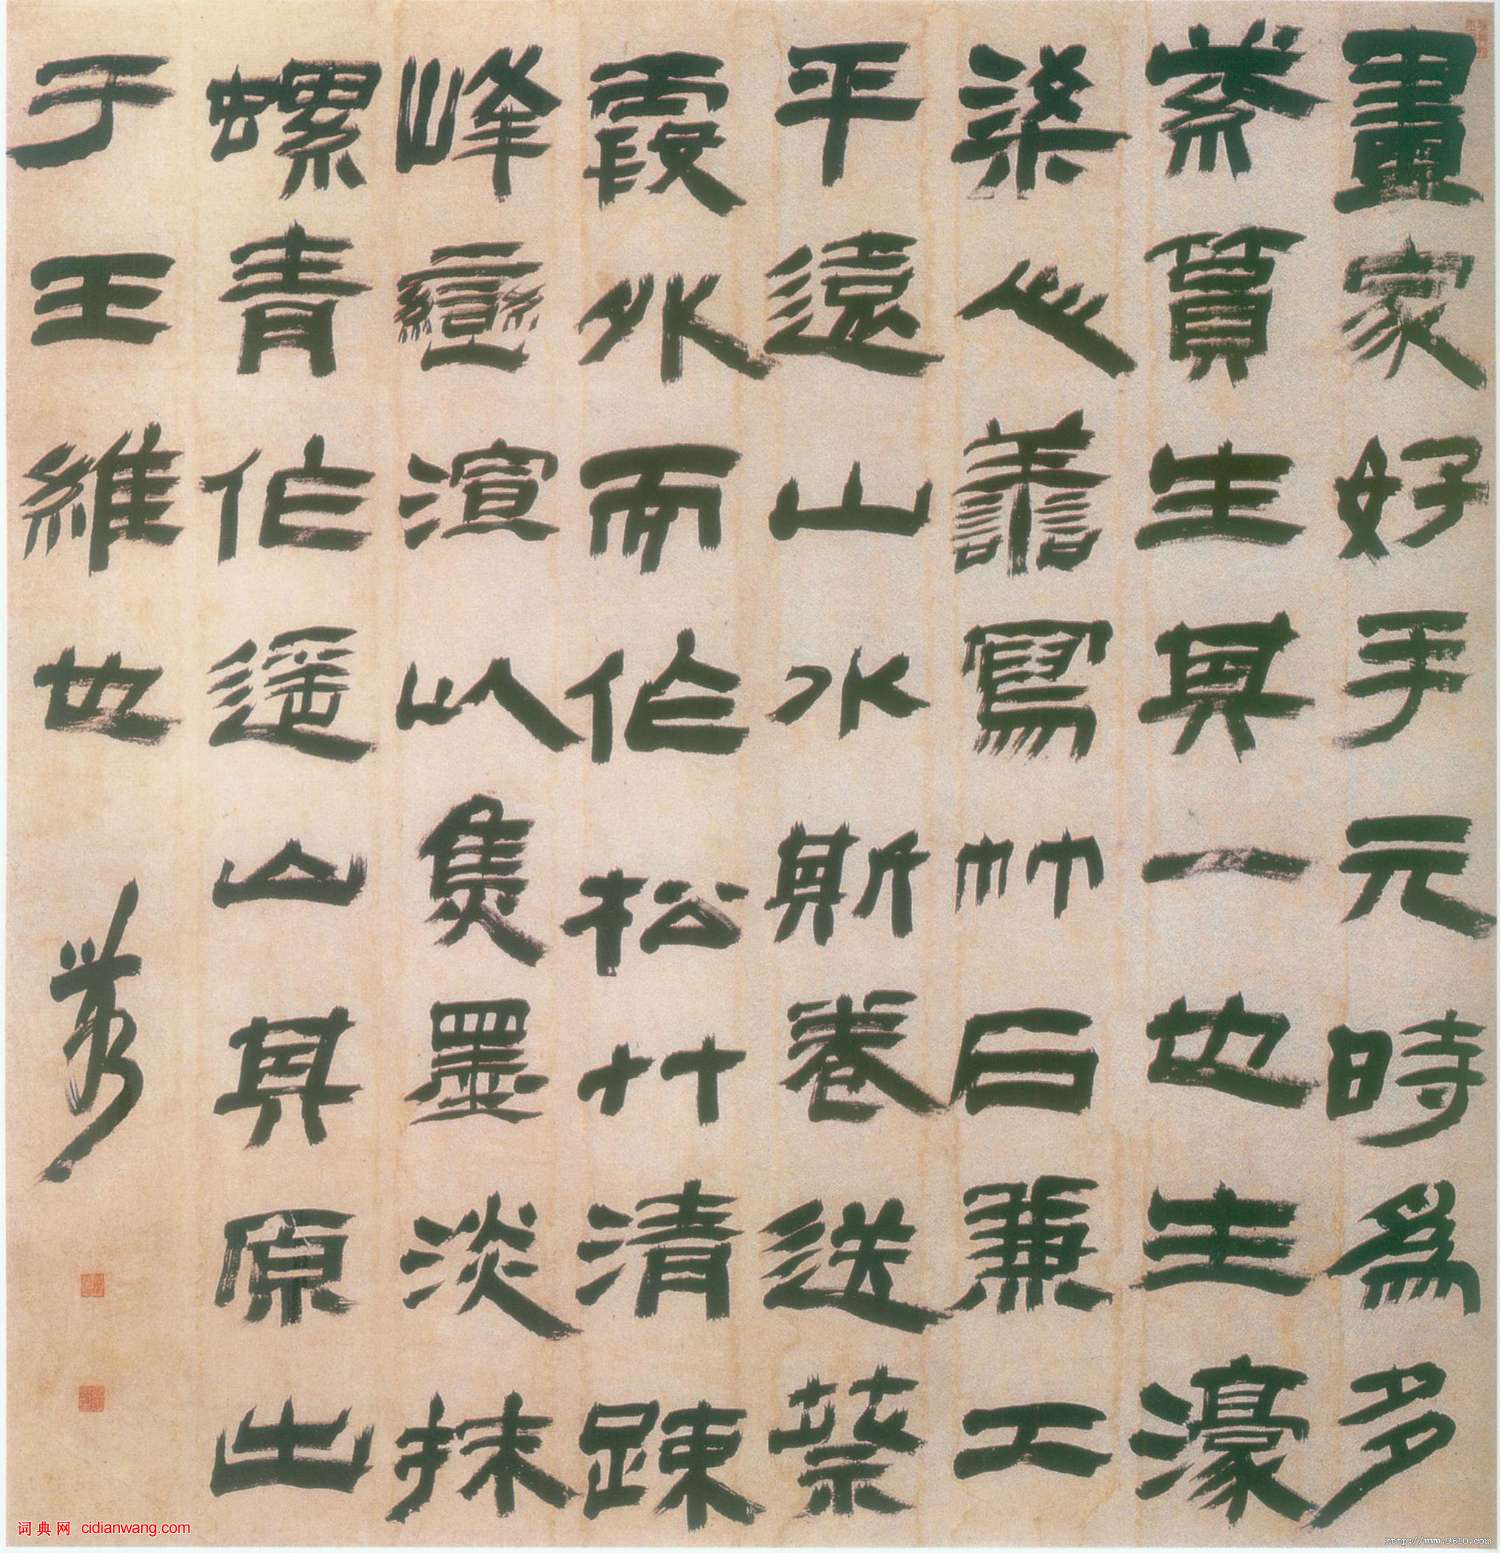 畫家好手元時爲多
質生其一也生濠
梁心善寫竹石兼工
平遠山水斯卷送
霞外而作松竹清疎
峰巒渲以隽墨淡抹
螺青作遥山其原出
于王維也
词典网 cidianwang.com